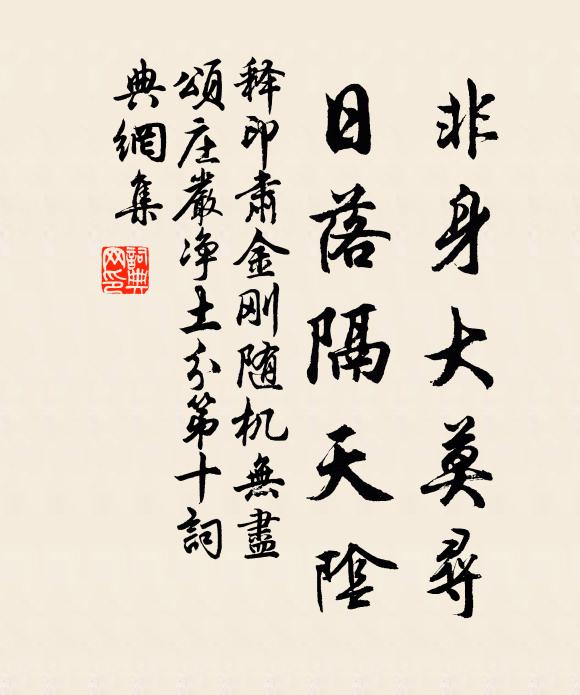 非身大莫尋
日落隔天陰
释印肃金刚随机無盡
頌庄嚴净土分第十詞
典網集
詞典網印